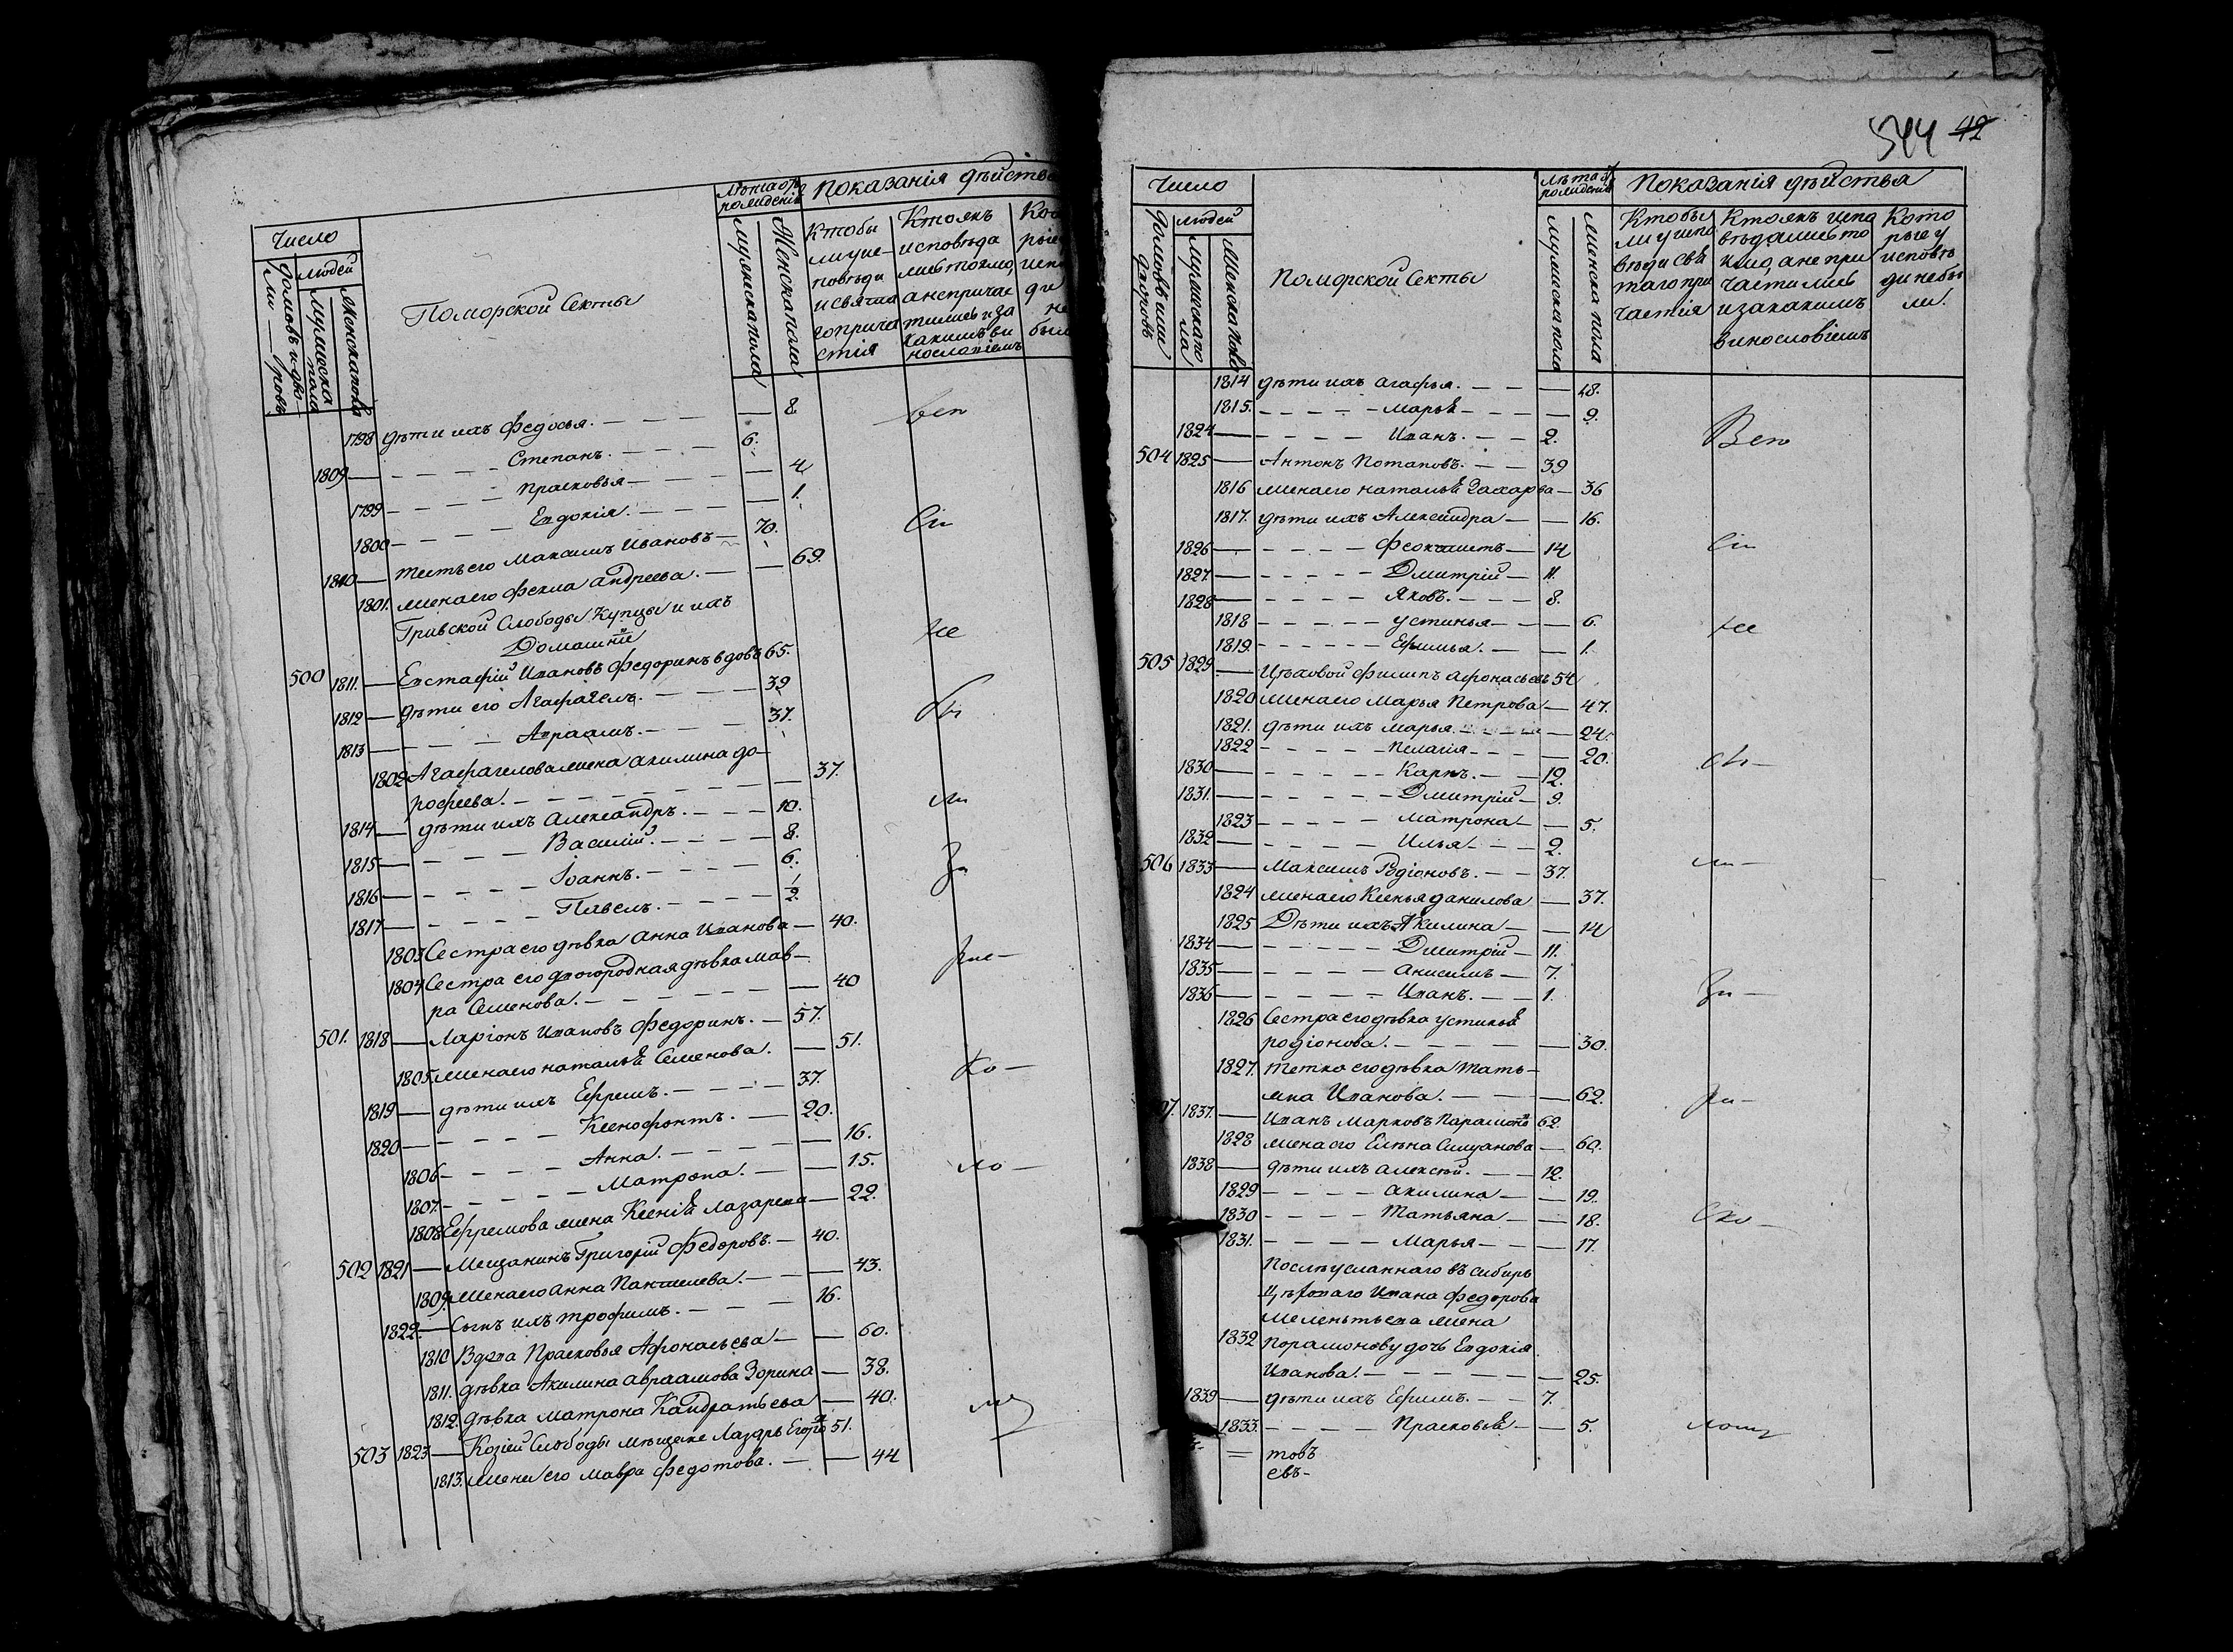 Число
Поморской Секты
Лѣта от рождения
Показанія дѣйства
домовъ или дворовъ
людей
мужеска пола
женска пола
мужеска пола
Женска пола
Кто бы
Кто якъ
исповѣда
и святаго прича
стія
1798 дѣти ихъ Федосья. — 8.
1809 — Степанъ. 6.
1799 Прасковья — 4
1800 Евдокія. — 1.
1810 — тесть его Максимъ Ивановъ — 70.
1801. жена его Фекла Андреева. — 69.
Гривской Слободы Купцы и ихъ
Домашніе
500 1811. — Евстафій Ивановъ Федоринъ вдовъ 65.
1812 — дѣти его Агафагелъ. 39
1813 — Авраамъ. 37.
1802 Агафагелова жена Акилина до-
рофеева. — 37.
1814 — дѣти ихъ Александръ. 10.
1815 — Василій. 8.
1816 — Іоаннъ. 6.
1817 — Павелъ. 1/2.
1803 Сестра его дѣвка Анна Иванова — 40.
1804 Сестра его двогородная дѣвка Мав-
ра Семенова. — 40
501. 1818 — Ларіонъ Ивановъ Федоринъ. — 57.
1805. жена его Наталья Семенова. — 51.
1819 — дѣти ихъ Ефремъ. 37.
1820 — Ксенофонтъ. 20.
1806 — Анна. — 16.
1807. — Матрона. — 15.
1808 Ефремова жена Ксенія Лазарева — 22.
502 1821 — Мещанинъ Григорій Федоровъ. — 40.
1809. жена его Анна Пантелева. — 43.
1822. — Сынъ ихъ Трофимъ. 16.
1810 Вдова Прасковья Афонасьева — 60.
1811. дѣвка Акилина Авраамова Зорина — 38.
1812. дѣвка Матрона Кандратьева — 40.
503 1823 — Козіей Слободы мѣщане Лазарь Егоровъ 51.
1813. жена его Мавра Федотова. — 44
544 42
Число
Поморской Секты
Лѣта от рождения
Показанія дѣйства
домовъ или дворовъ
людей
мужеска пола
женска пола
мужеска пола
женска пола
Кто бы
ли у испо
вѣди и свя
таго при
частія
Кто якъ испо
вѣдались то
кмо, а не при
частились
и за какимъ
винословіемъ
Кото
рые у
исповѣ
ди не бы
ли.
1814 дѣти ихъ Агафья. — 18.
1815. Марья — 9.
1824 — Иванъ. — 2.
504 1825 — Антонъ Потаповъ. — 39
1816 жена его Наталья Захарова — 36
1817. дѣти ихъ Александра — 16.
1826 — 14
1827. — Дмитрій — 11.
1828 — Яковъ. — 8.
1818 Устинья — 6.
1819. Ефимья. — 1.
505 1829 — Цѣховой Филипъ Афонасьевъ 54
1820 жена его Марья Петрова — 47.
1821. дѣти ихъ Марья. — 24.
1822 Пелагія — 20.
1830 — Карпъ. — 12.
1831. — Дмитрій — 9.
1823 Матрона — 5.
1832 — Илья — 2.
506 1833 — Максимъ Родіоновъ. — 37.
1824 жена его Ксенья Данилова — 37.
1825 Дѣти ихъ Акилина — 14
1834 — Дмитрій — 11.
1835 — Анисимъ — 7.
1836 — Иванъ. — 1.
1826 Сестра его дѣвка Устинья
Родіонова. — 30.
1827. тетка его дѣвка Тать-
яна Иванова. — 62.
07. 1837. — Иванъ Марковъ Парамоновъ 62.
1828 жена его Елена — 60.
1838 — дѣти ихъ Алексѣй. — 12.
1829 Акилина — 19.
1830 Татьяна — 18.
1831. Марья — 17.
Послѣ усланнаго въ Сибирь
Цѣховаго Ивана Федорова
Меленьтьева жена
1832 Порамонову дочь Евдокія
Иванова. — 25.
1839 — дѣти ихъ Ефимъ. — 7.
1833. Прасковья — 5.
товъ
евъ-